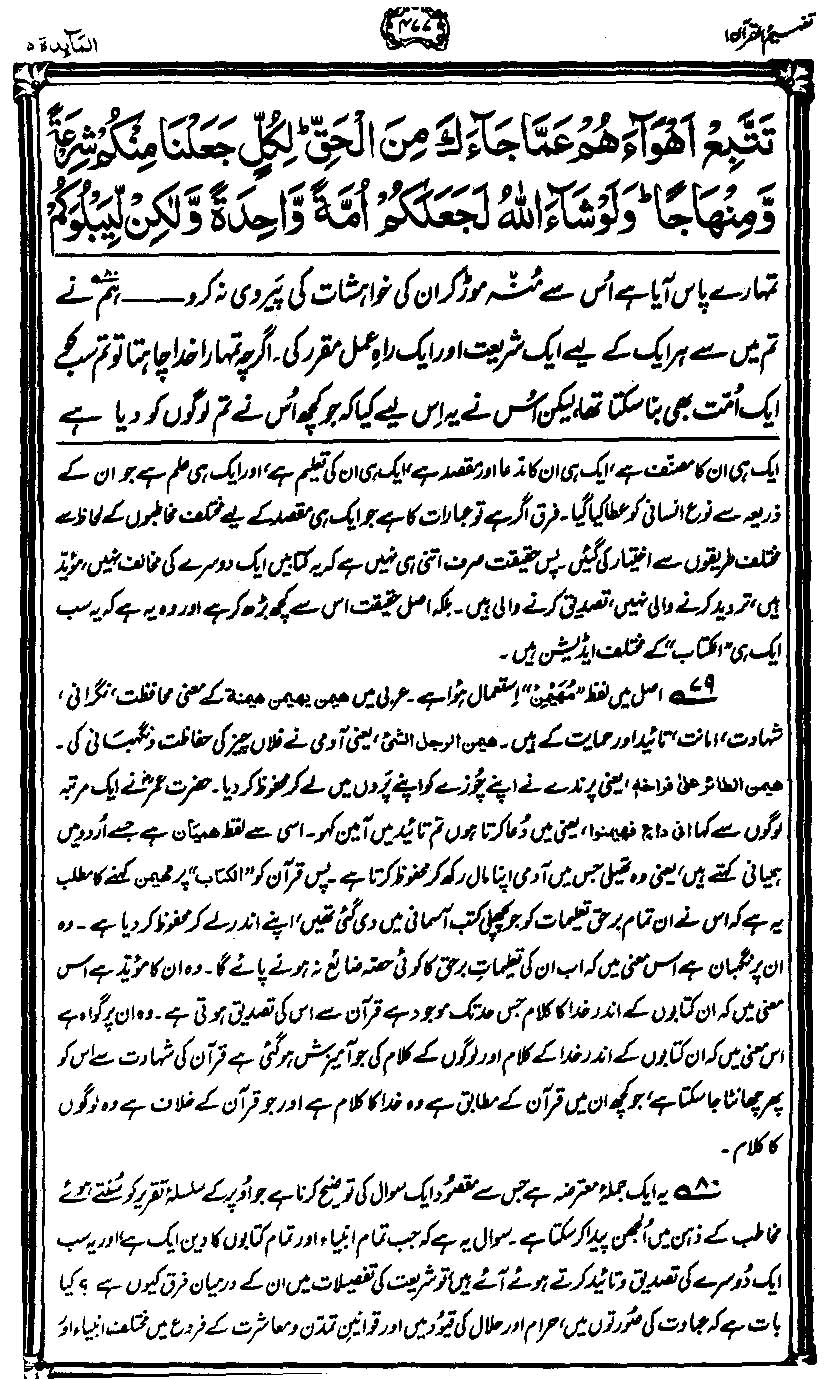 تفہیم القرآن ۱
۴۷۷
المآئدۃ ۵
تَتَّبِعْ اَهْوَآءَهُمْ عَمَّا جَآءَكَ مِنَ الْحَقِّ ؕ لِكُلٍّ جَعَلْنَا مِنْكُمْ شِرْعَةً
وَّمِنْهَاجًا ؕ وَلَوْ شَآءَ اللّٰهُ لَجَعَلَكُمْ اُمَّةً وَّاحِدَةً وَّلٰكِنْ لِّيَبْلُوَكُمْ
تمہارے پاس آیا ہے اُس سے مُنہ موڑ کر ان کی خواہشات کی پَیروی نہ کرو ـــــ ۸۰ ہم نے
تم میں سے ہر ایک کے لیے ایک شریعت اور ایک راہِ عمل مقرر کی۔ اگرچہ تمہارا خدا چاہتا تو تم سب کو
ایک اُمّت بھی بنا سکتا تھا، لیکن اُس نے یہ اِس لیے کیا کہ جو کچھ اُس نے تم لوگوں کو دیا ہے
ایک ہی ان کا مصنّف ہے، ایک ہی ان کا مدّعا اور مقصد ہے، ایک ہی ان کی تعلیم ہے، اور ایک ہی علم ہے جو ان کے
ذریعہ سے نوع انسانی کو عطا کیا گیا۔ فرق اگر ہے تو عبارات کا ہے جو ایک ہی مقصد کے لیے مختلف مخاطبوں کے لحاظ سے
مختلف طریقوں سے اختیار کی گئیں۔ پس حقیقت صرف اتنی ہی نہیں ہے کہ یہ کتابیں ایک دوسرے کی مخالف نہیں، مؤیّد
ہیں، تردید کرنے والی نہیں، تصدیق کرنے والی ہیں۔ بلکہ اصل حقیقت اس سے کچھ بڑھ کر ہے اور وہ یہ ہے کہ یہ سب
ایک ہی ”الکتاب“ کے مختلف ایڈیشن ہیں۔
۷۹ اصل میں لفظ ”مُھَیْمِنْ“ اِستعمال ہؤا ہے۔ عربی میں ھیمن یھیمن ھیمنۃ کے معنی محافظت، نگرانی،
شہادت، امانت، تائید اور حمایت کے ہیں۔ ھیمن الرجل الشئ، یعنی آدمی نے فلاں چیز کی حفاظت و نگہبانی کی۔
ھیمن الطائر علیٰ فراخہ، یعنی پرندے نے اپنے چُوزے کو اپنے پَروں میں لے کر محفوظ کر دیا۔ حضرت عمرؓ نے ایک مرتبہ
لوگوں سے کہا انی داع فھیمنوا، یعنی میں دُعا کرتا ہوں تم تائید میں آمین کہو۔ اسی سے لفظ ھِمْیَان ہے جسے اُردو میں
ہمیانی کہتے ہیں، یعنی وہ تھیلی جس میں آدمی اپنا مال رکھ کر محفوظ کرتا ہے۔ پس قرآن کو ”الکتاب“ پر مھیمن کہنے کا مطلب
یہ ہے کہ اس نے ان تمام برحق تعلیمات کو جو پچھلی کتب آسمانی میں دی گئی تھیں، اپنے اندر لے کر محفوظ کر دیا ہے۔ وہ
ان پر نگہبان ہے اس معنی میں کہ اب ان کی تعلیماتِ برحق کا کوئی حصّہ ضائع نہ ہونے پائے گا۔ وہ ان کا مؤیّد ہے اس
معنی میں کہ ان کتابوں کے اندر خدا کا کلام جس حد تک موجود ہے قرآن سے اس کی تصدیق ہوتی ہے۔ وہ ان پر گواہ ہے
اس معنی میں کہ ان کتابوں کے اندر خدا کے کلام اور لوگوں کے کلام کی جو آمیزش ہو گئی ہے قرآن کی شہادت سے اس کو
پھر چھانٹا جا سکتا ہے، جو کچھ ان میں قرآن کے مطابق ہے وہ خدا کا کلام ہے اور جو قرآن کے خلاف ہے وہ لوگوں
کا کلام۔
۸۰ یہ ایک جملۂ معترضہ ہے جس سے مقصُود ایک سوال کی توضیح کرنا ہے جو اُوپر کے سلسلۂ تقریر کو سُنتے ہوئے
مخاطب کے ذہن میں اُلجھن پیدا کر سکتا ہے۔ سوال یہ ہے کہ جب تمام انبیاء اور تمام کتابوں کا دین ایک ہے، اور یہ سب
ایک دُوسرے کی تصدیق و تائید کرتے ہوئے آئے ہیں تو شریعت کی تفصیلات میں ان کے درمیان فرق کیوں ہے؟ کیا
بات ہے کہ عبادت کی صُورتوں میں، حرام اور حلال کی قیُود میں اور قوانینِ تمدّن و معاشرت کے فروع میں مختلف انبیاء اور